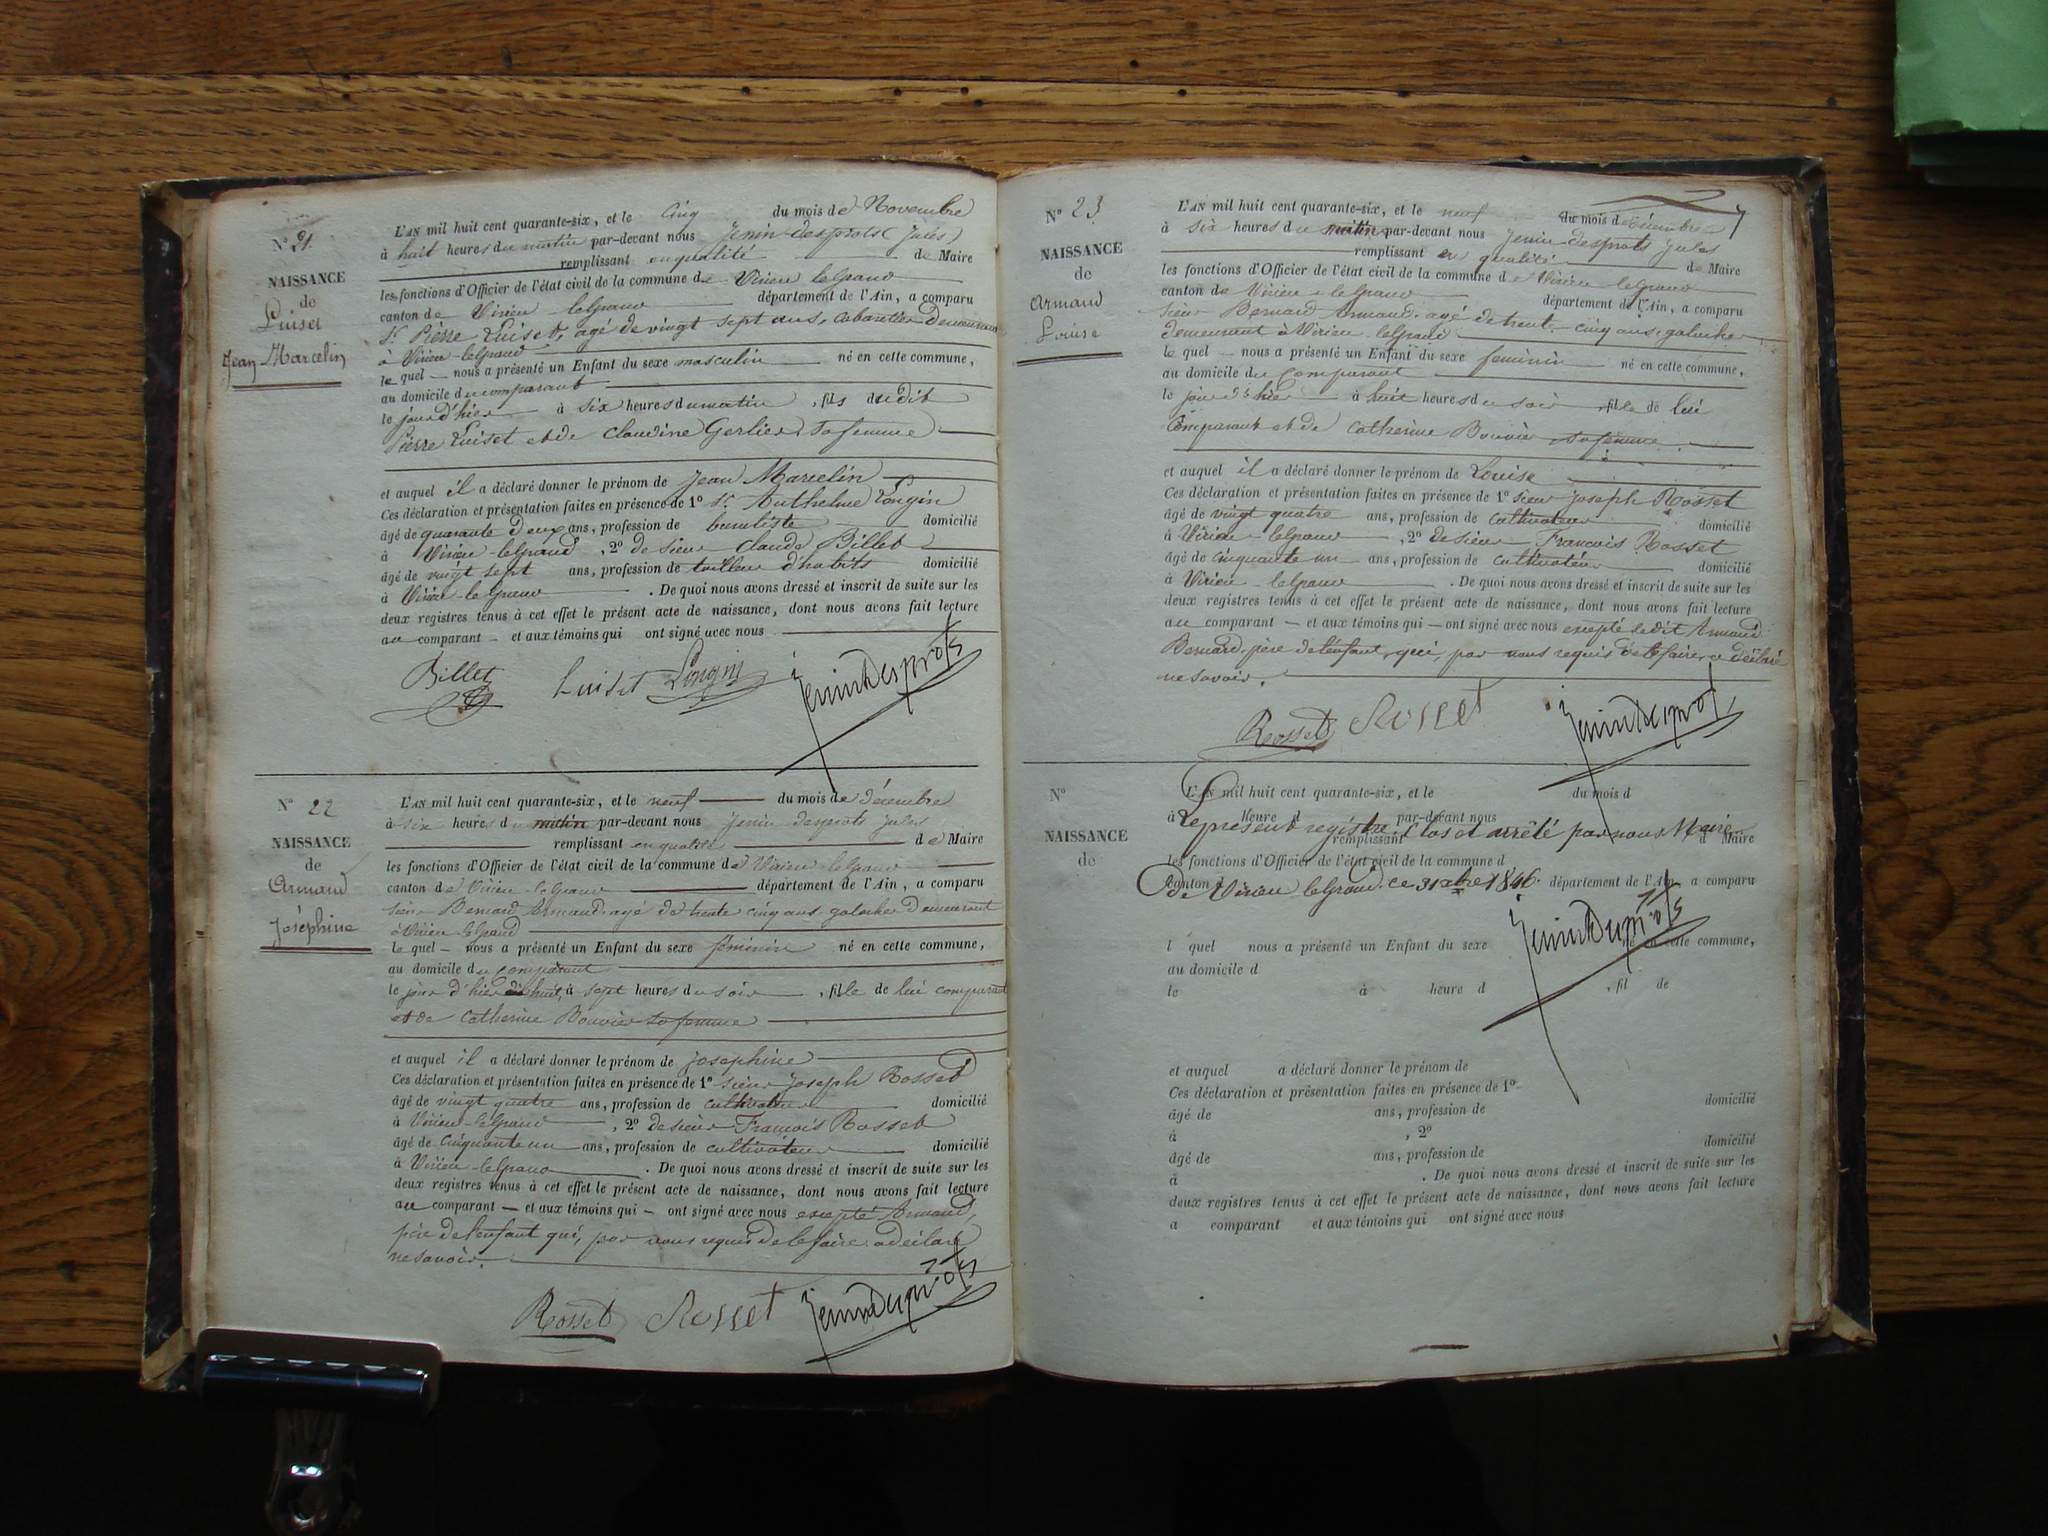 N° 21.
NAISSANCE
de
Luiset
Jean Marcelin
L'AN mil huit cent quarante-six, et le cinq du mois de Novembre
à huit heures du matin par-devant nous Jenin-desprots (Jules)
remplissant en qualité de Maire
les fonctions d'Officier de l'état civil de la commune de Virieu-le-Grand
canton de Virieu-le-Grand département de l'Ain, a comparu
Sr. Pierre Luiset, agé de vingt sept ans, cabaretier Demeurant
à Virieu-le-Grand
le quel — nous a présenté un Enfant du sexe masculin né en cette commune,
au domicile du comparant
le jour d'hier à six heures du matin, fils dudit
Pierre Luiset et de Claudine Gerlier, sa femme
et auquel il a déclaré donner le prénom de Jean Marcelin
Ces déclaration et présentation faites en présence de 1° Sr. Anthelme Longin
âgé de quarante Deux ans, profession de domicilié
à Virieu-le-Grand, 2° de sieur Claude Billet
âgé de vingt sept ans, profession de tailleur d'habits domicilié
à Virieu-le-Grand. De quoi nous avons dressé et inscrit de suite sur les
deux registres tenus à cet effet le présent acte de naissance, dont nous avons fait lecture
au comparant — et aux témoins qui ont signé avec nous
Billet Luiset Longin JeninDesprots
N° 22
NAISSANCE
de
Armand
Joséphine
L'AN mil huit cent quarante-six, et le neuf du mois de décembre
à six heures du matin par-devant nous Jenin desprots Jules
remplissant en qualité de Maire
les fonctions d'Officier de l'état civil de la commune de Virieu-le-Grand
canton de Virieu-le-Grand département de l'Ain, a comparu
sieur Bernard Armand, agé de trente cinq ans, galocher Demeurant
à Virieu-le-Grand
le quel — nous a présenté un Enfant du sexe féminin né en cette commune,
au domicile du comparant
le jour d'hier huit, à sept heures du soir, fille de lui comparant
et de Catherine Bouvier sa femme
et auquel il a déclaré donner le prénom de Josephine
Ces déclaration et présentation faites en présence de 1° sieur Joseph Rosset
âgé de vingt quatre ans, profession de cultivateur domicilié
à Virieu-le-Grand, 2° de sieur François Rosset
âgé de cinquante un ans, profession de cultivateur domicilié
à Virieu-le-Grand. De quoi nous avons dressé et inscrit de suite sur les
deux registres tenus à cet effet le présent acte de naissance, dont nous avons fait lecture
au comparant — et aux témoins qui — ont signé avec nous excepté Armand,
père de l'enfant qui, par nous requis de le faire a déclaré
ne savoir.
Rosset Rosset JeninDesprots
N° 23
NAISSANCE
de
Armand
Louise
L'AN mil huit cent quarante-six, et le neuf du mois de décembre
à six heures du matin par-devant nous Jenin-desprots Jules
remplissant en qualité de Maire
les fonctions d'Officier de l'état civil de la commune de Virieu-le-Grand
canton de Virieu-le-Grand département de l'Ain, a comparu
sieur Bernard Armand, agé de trente-cinq ans, galocher
demeurant à Virieu-le-Grand
le quel — nous a présenté un Enfant du sexe féminin né en cette commune,
au domicile du comparant
le jour d'hier à huit heures du soir, fille de lui
comparant et de Catherine Bouvier sa femme
et auquel il a déclaré donner le prénom de Louise
Ces déclaration et présentation faites en présence de 1° sieur Joseph Rosset
âgé de vingt quatre ans, profession de cultivateur domicilié
à Virieu-le-Grand, 2° de sieur François Rosset
âgé de cinquante un ans, profession de cultivateur domicilié
à Virieu-le-Grand. De quoi nous avons dressé et inscrit de suite sur les
deux registres tenus à cet effet le présent acte de naissance, dont nous avons fait lecture
au comparant — et aux témoins qui — ont signé avec nous excepté ledit Armand
Bernard, père de l'enfant, qui, par nous requis de le faire, a déclaré
ne savoir.
Rosset Rosset JeninDesprots
N°
NAISSANCE
de
L'AN mil huit cent quarante-six, et le du mois d
à heure d par-devant nous
Le présent registre, clos et arrêté par nous Maire
remplissant d Maire
les fonctions d'Officier de l'état civil de la commune d
canton d département de l'Ain, a comparu
De Virieu-le-Grand, ce 31 Xbre 1846.
JeninDesprots
l quel nous a présenté un Enfant du sexe né en cette commune,
au domicile d
le à heure d, fil de
et auquel a déclaré donner le prénom de
Ces déclaration et présentation faites en présence de 1°
âgé de ans, profession de domicilié
à, 2°
âgé de ans, profession de domicilié
à. De quoi nous avons dressé et inscrit de suite sur les
deux registres tenus à cet effet le présent acte de naissance, dont nous avons fait lecture
a comparant et aux témoins qui ont signé avec nous